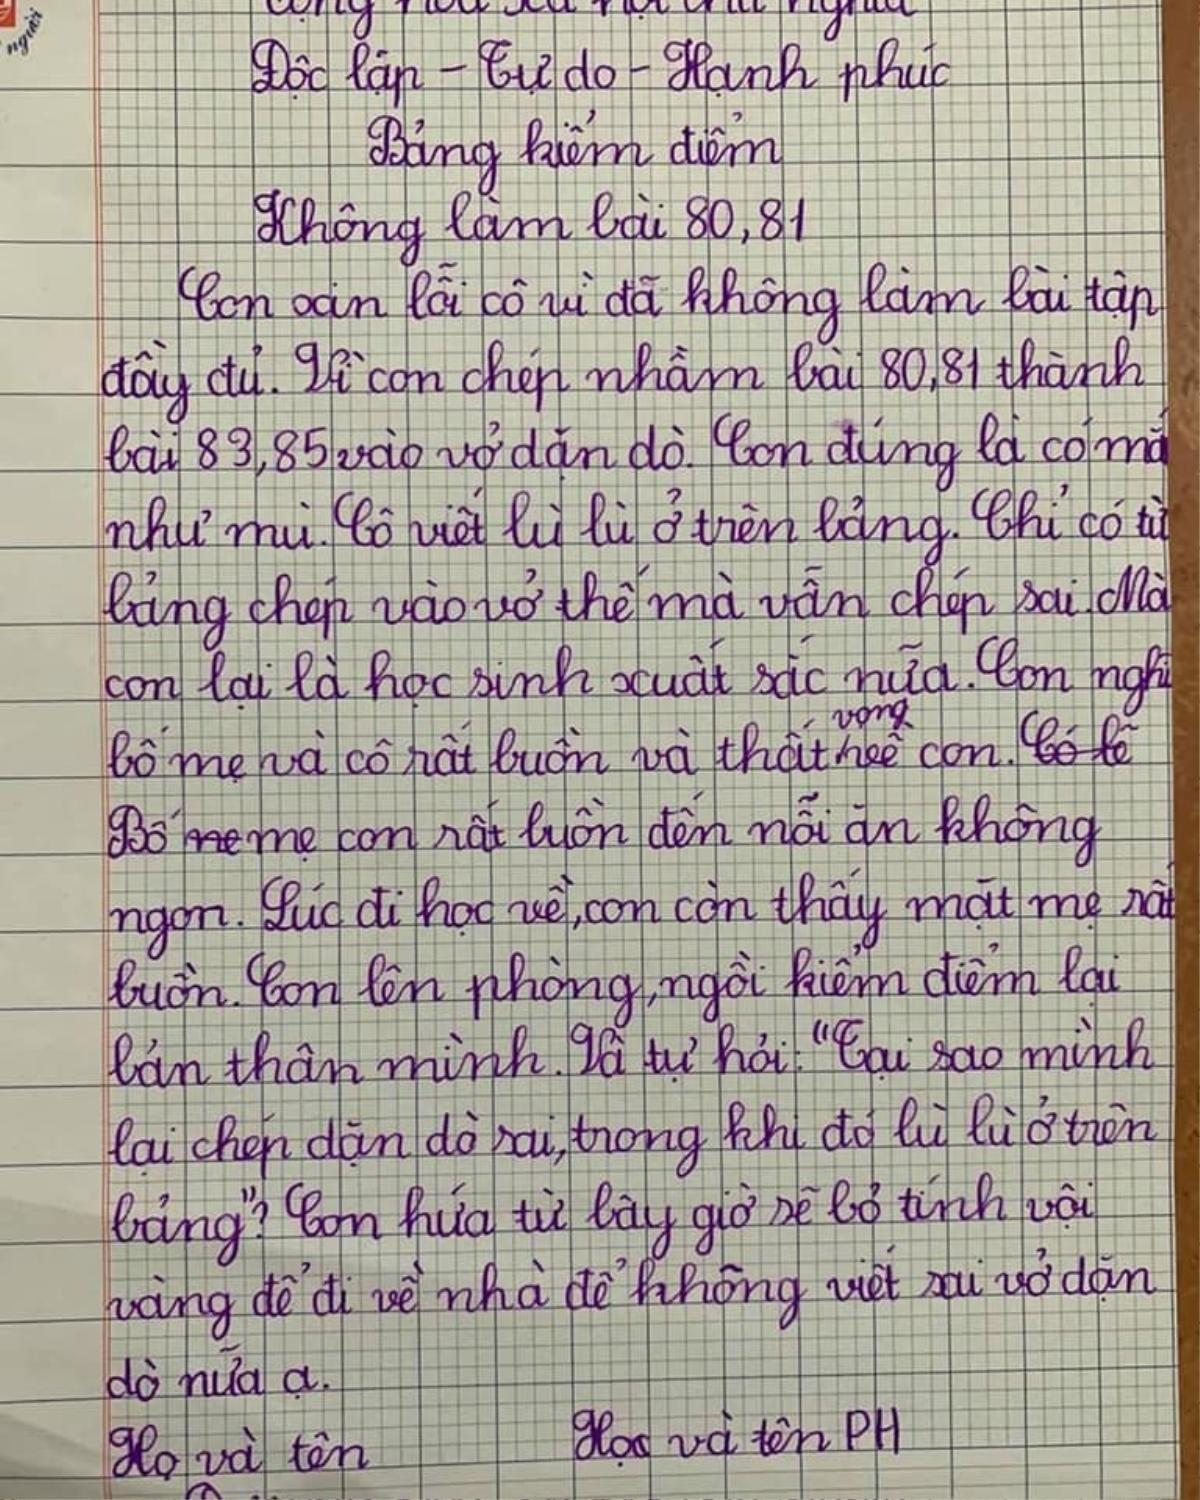 người
Cộng hòa xã hội chủ nghĩa
Độc lập - Tự do - Hạnh phúc
Bảng kiểm điểm
Không làm bài 80,81
Con xin lỗi cô vì đã không làm bài tập
đầy đủ. Vì con chép nhầm bài 80,81 thành
bài 83,85 vào vở dặn dò. Con đúng là có mắ
như mù. Cô viết lù lù ở trên bảng. Chỉ có từ
bảng chép vào vở thế mà vẫn chép sai. Mà
con lại là học sinh xuất sắc nữa. Con nghĩ
vọng
bố mẹ và cô rất buồn và thất heề con. Có lẽ
Bố me mẹ con rất buồn đến nỗi ăn không
ngon. Lúc đi học về, con còn thấy mặt mẹ rất
buồn. Con lên phòng, ngồi kiểm điểm lại
bản thân mình. Và tự hỏi: "Tại sao mình
lại chép dặn dò sai, trong khi đó lù lù ở trên
bảng"? Con hứa từ bây giờ sẽ bỏ tính vội
vàng để đi về nhà để không viết sai vở dặn
dò nữa ạ.
Họ và tên Họ và tên PH